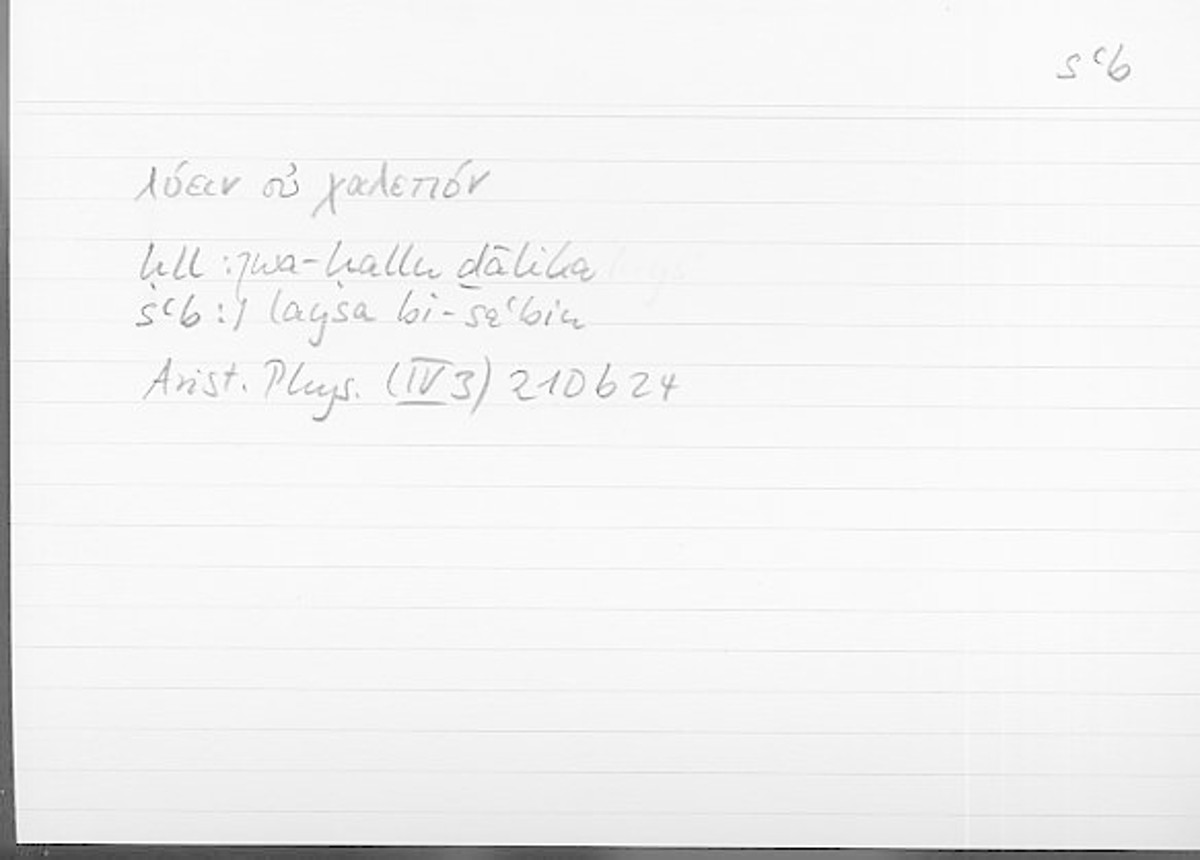 sʿb
λύειν οὐ χαλεπόν
ḥll :] wa-ḥallu ḏālika
ṣʿb :] laysa bi-ṣaʿbin
Arist. Phys. (IV 3) 210 b 24